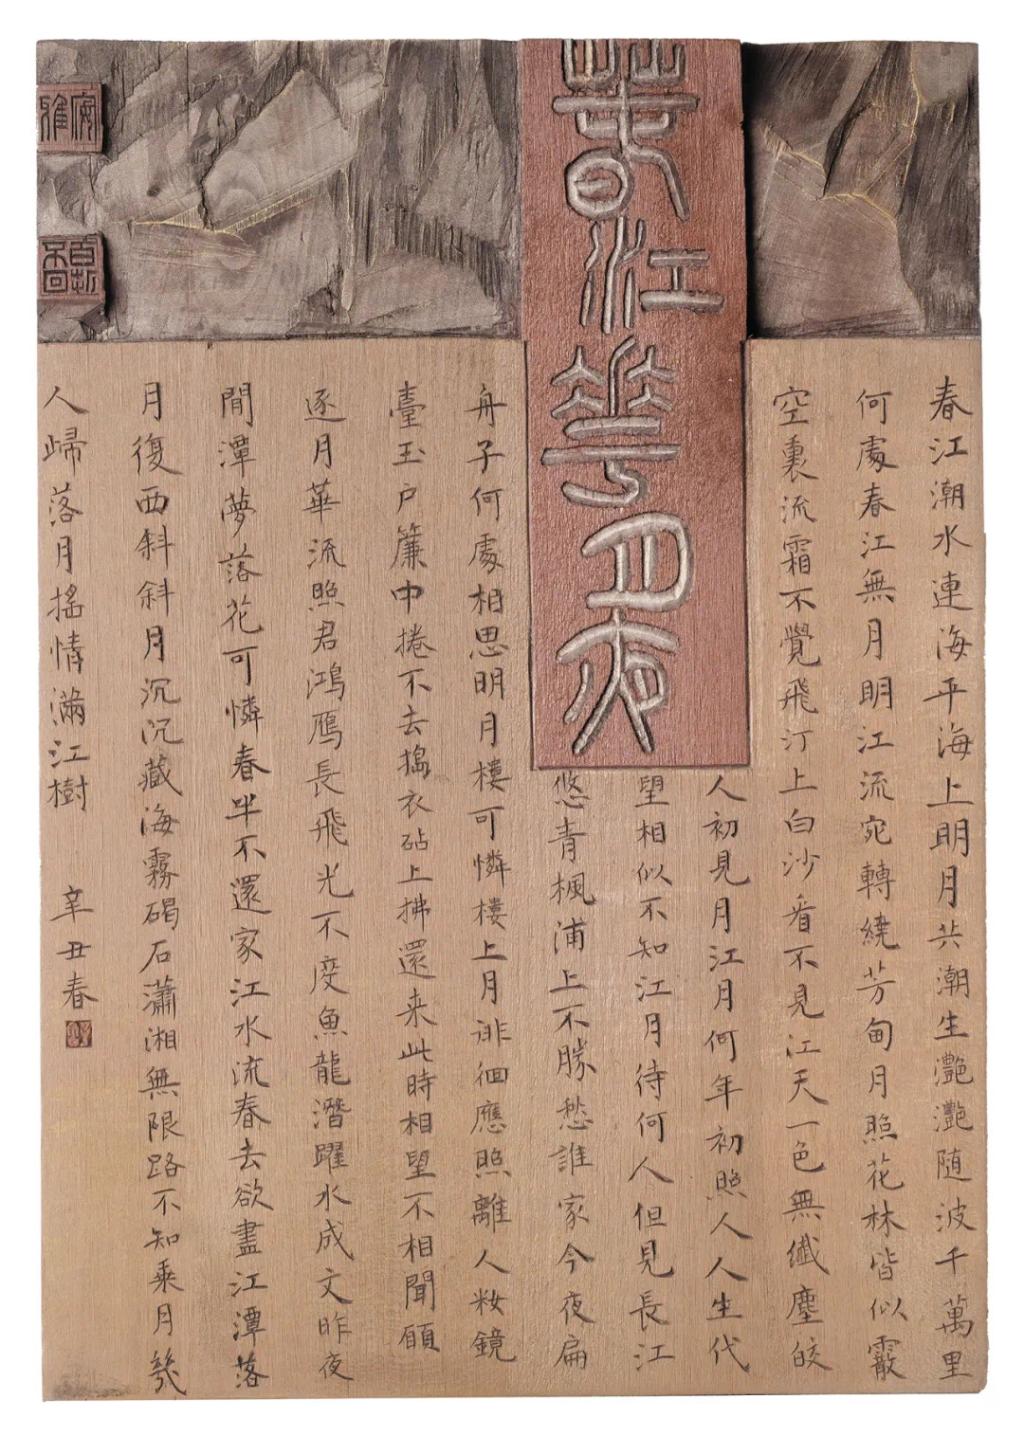 春江花月夜
春江潮水連海平海上明月共潮生灩灩随波千萬里
何處春江無月明江流宛轉繞芳甸月照花林皆似霰
空裏流霜不覺飛汀上白沙看不見江天一色無纖塵皎
人初見月江月何年初照人人生代
望相似不知江月待何人但見長江
悠青楓浦上不勝愁誰家今夜扁
舟子何處相思明月樓可憐樓上月徘徊應照離人妝鏡
臺玉户簾中捲不去搗衣砧上拂還来此時相望不相聞願
逐月華流照君鴻雁長飛光不度魚龍潛躍水成文昨夜
間潭夢落花可憐春半不還家江水流春去欲盡江潭落
月復西斜斜月沉沉藏海霧碣石瀟湘無限路不知乘月幾
人歸落月搖情滿江樹 辛丑春